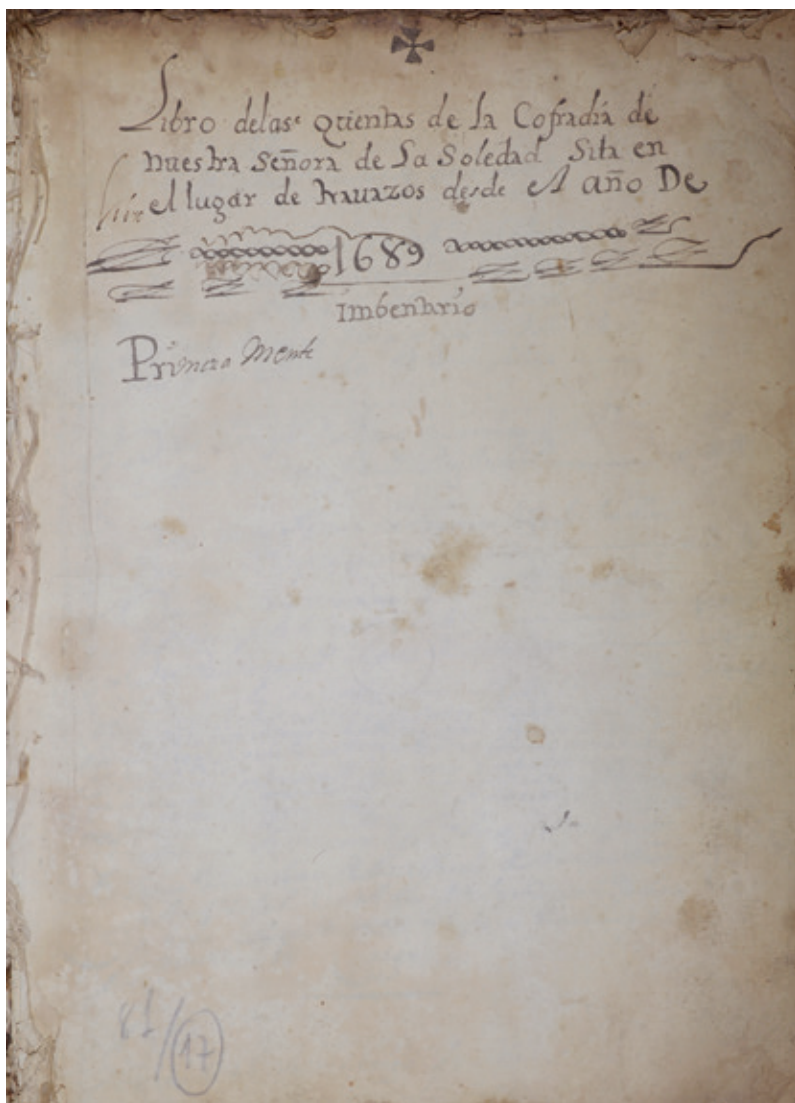 Libro delas quentas de la Cofradia de
nuestra Señora de La Soledad Sita en
el lugar de Navazos desde el año De
1689
Imbentario
Primera Mente
81/17